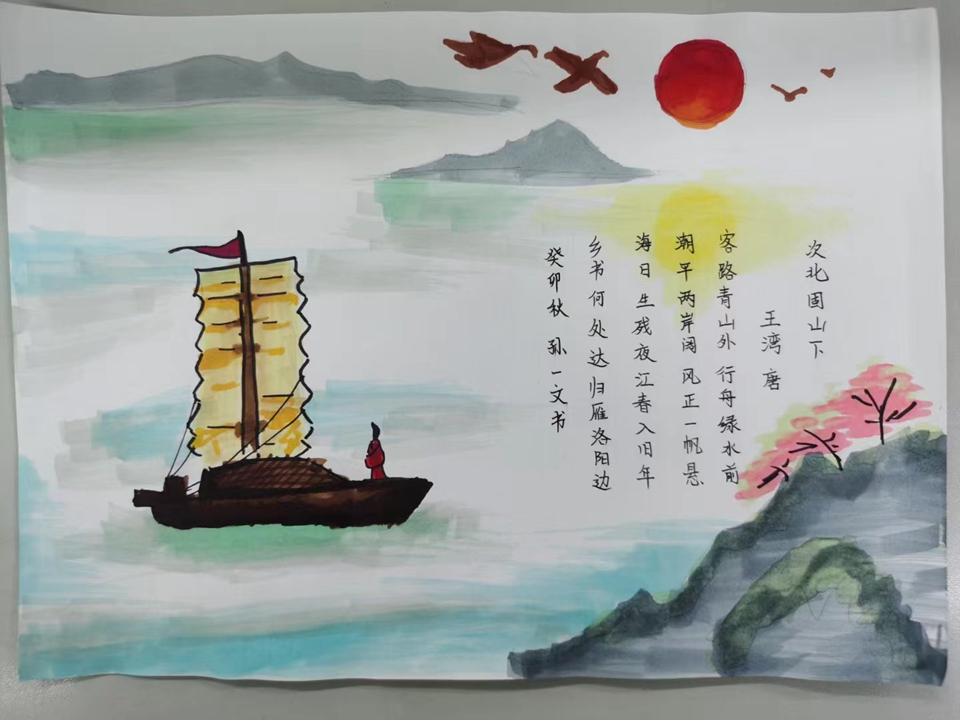 次北固山下
王湾 唐
客路青山外 行舟绿水前
潮平两岸阔 风正一帆悬
海日生残夜 江春入旧年
乡书何处达 归雁洛阳边
癸卯秋 孙一文书